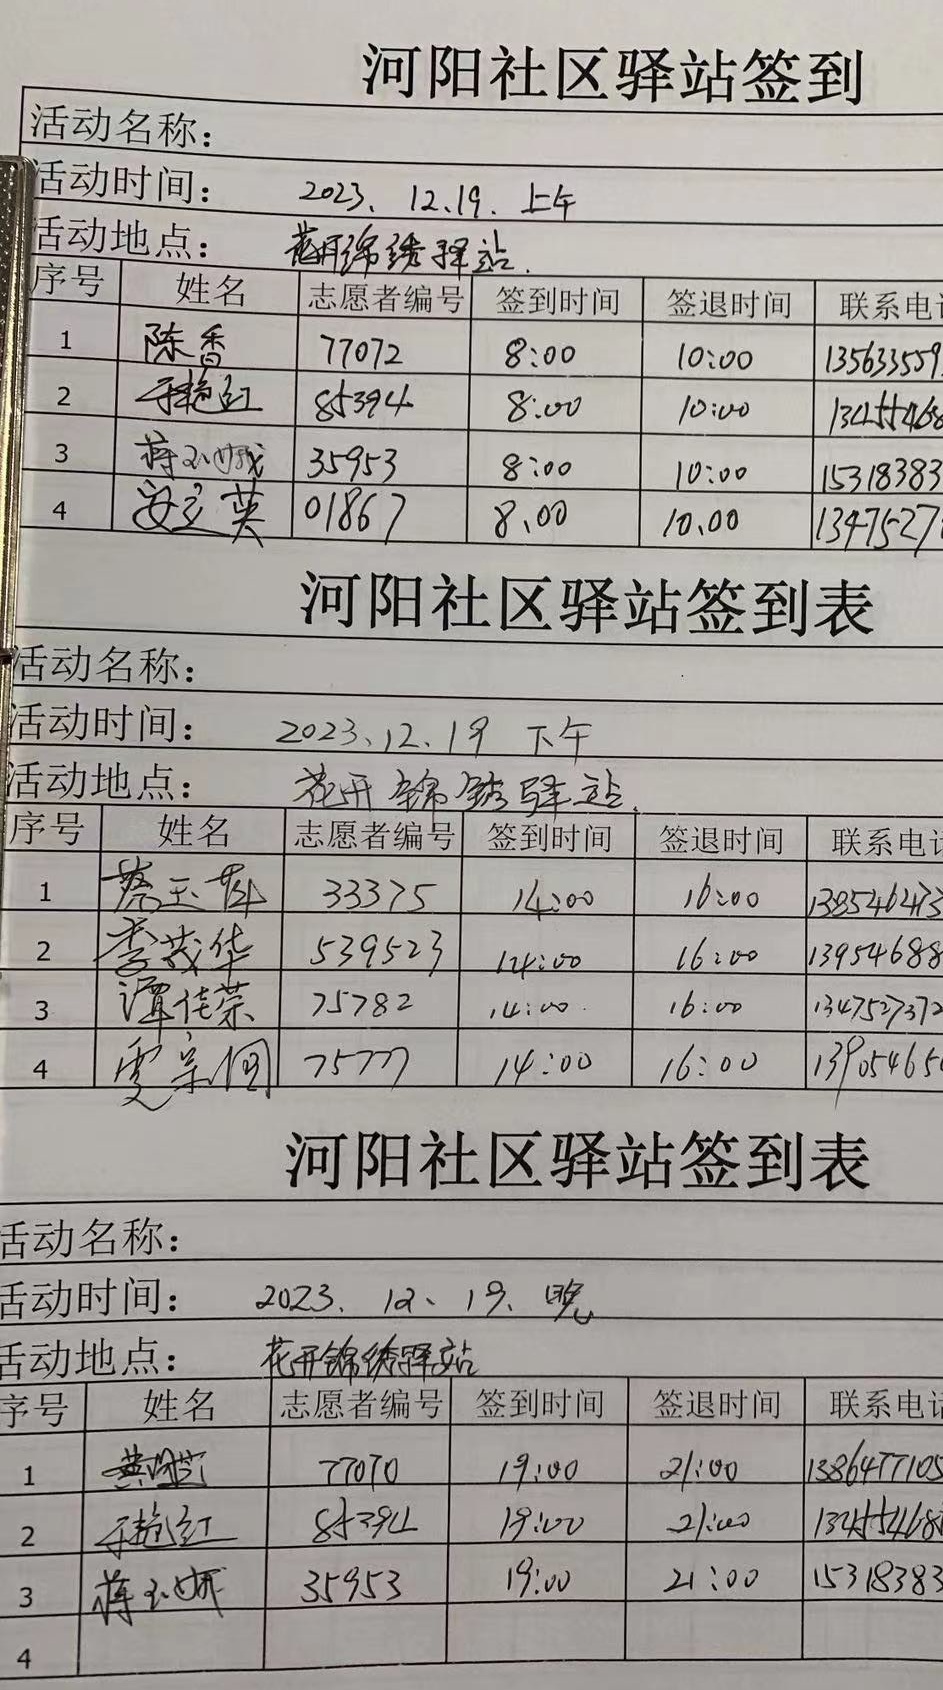 河阳社区驿站签到
活动名称：
活动时间： 2023、12.19. 上午
活动地点： 花开锦绣驿站.
序号 姓名 志愿者编号 签到时间 签退时间 联系电
1 陈香 77072 8:00 10:00 135633559
2 于艳红 85394 8:00 10:00 13455468
3 蒋玉娥 35953 8:00 10:00 15318383
4 安立英 01867 8.00 10.00 1347527
河阳社区驿站签到表
活动名称：
活动时间： 2023、12、19 下午
活动地点： 花开锦绣驿站.
序号 姓名 志愿者编号 签到时间 签退时间 联系电
1 蔡玉 33375 14:00 16:00 138546473
2 李茂华 539523 14:00 16:00 13954688
3 谭佳荣 75782 14:00 16:00 134752737
4 75777 14:00 16:00 13905465
河阳社区驿站签到表
活动名称：
活动时间： 2023、12、19、晚
活动地点： 花开锦绣驿站
序号 姓名 志愿者编号 签到时间 签退时间 联系电
1 黄 77070 19:00 21:00 1386477105
2 于艳红 85394 19:00 21:00 13455468
3 蒋玉娥 35953 19:00 21:00 15318383
4